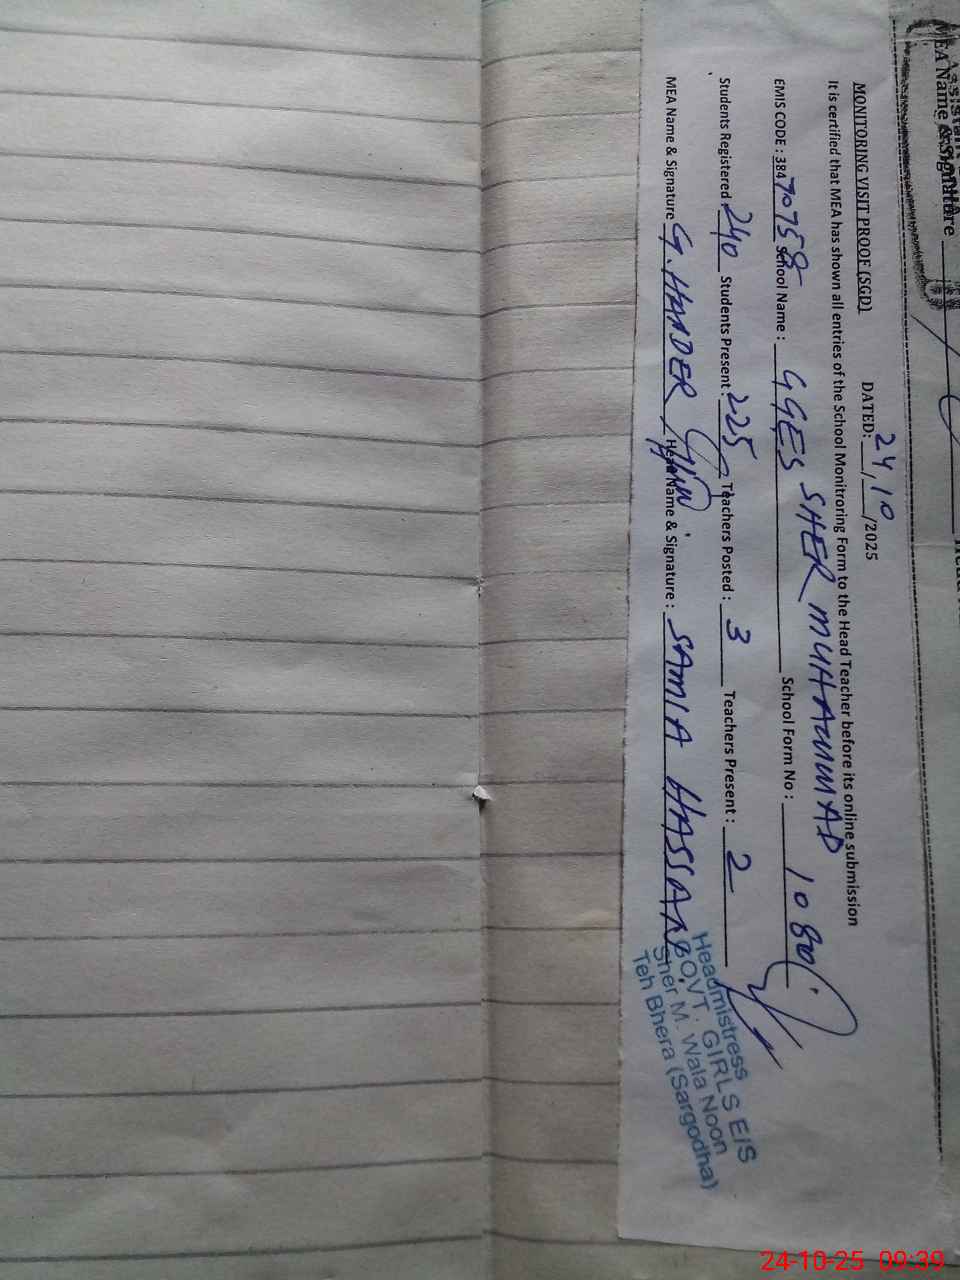 MEA Name & Signature
MONITORING VISIT PROOF (SGD) DATED: 24/10/2025
It is certified that MEA has shown all entries of the School Monitroring Form to the Head Teacher before its online submission
EMIS CODE : 384 70758 School Name : GGES SHER MUHAMMAD School Form No : 1080
Students Registered 240 Students Present 225 Teachers Posted : 3 Teachers Present : 2
MEA Name & Signature G. HAADER Head Name & Signature : SAMIA HASSAN
Headmistress
GOVT. GIRLS E/S
Sher M. Wala Noon
Teh Bhera (Sargodha)
24-10-25 09:39